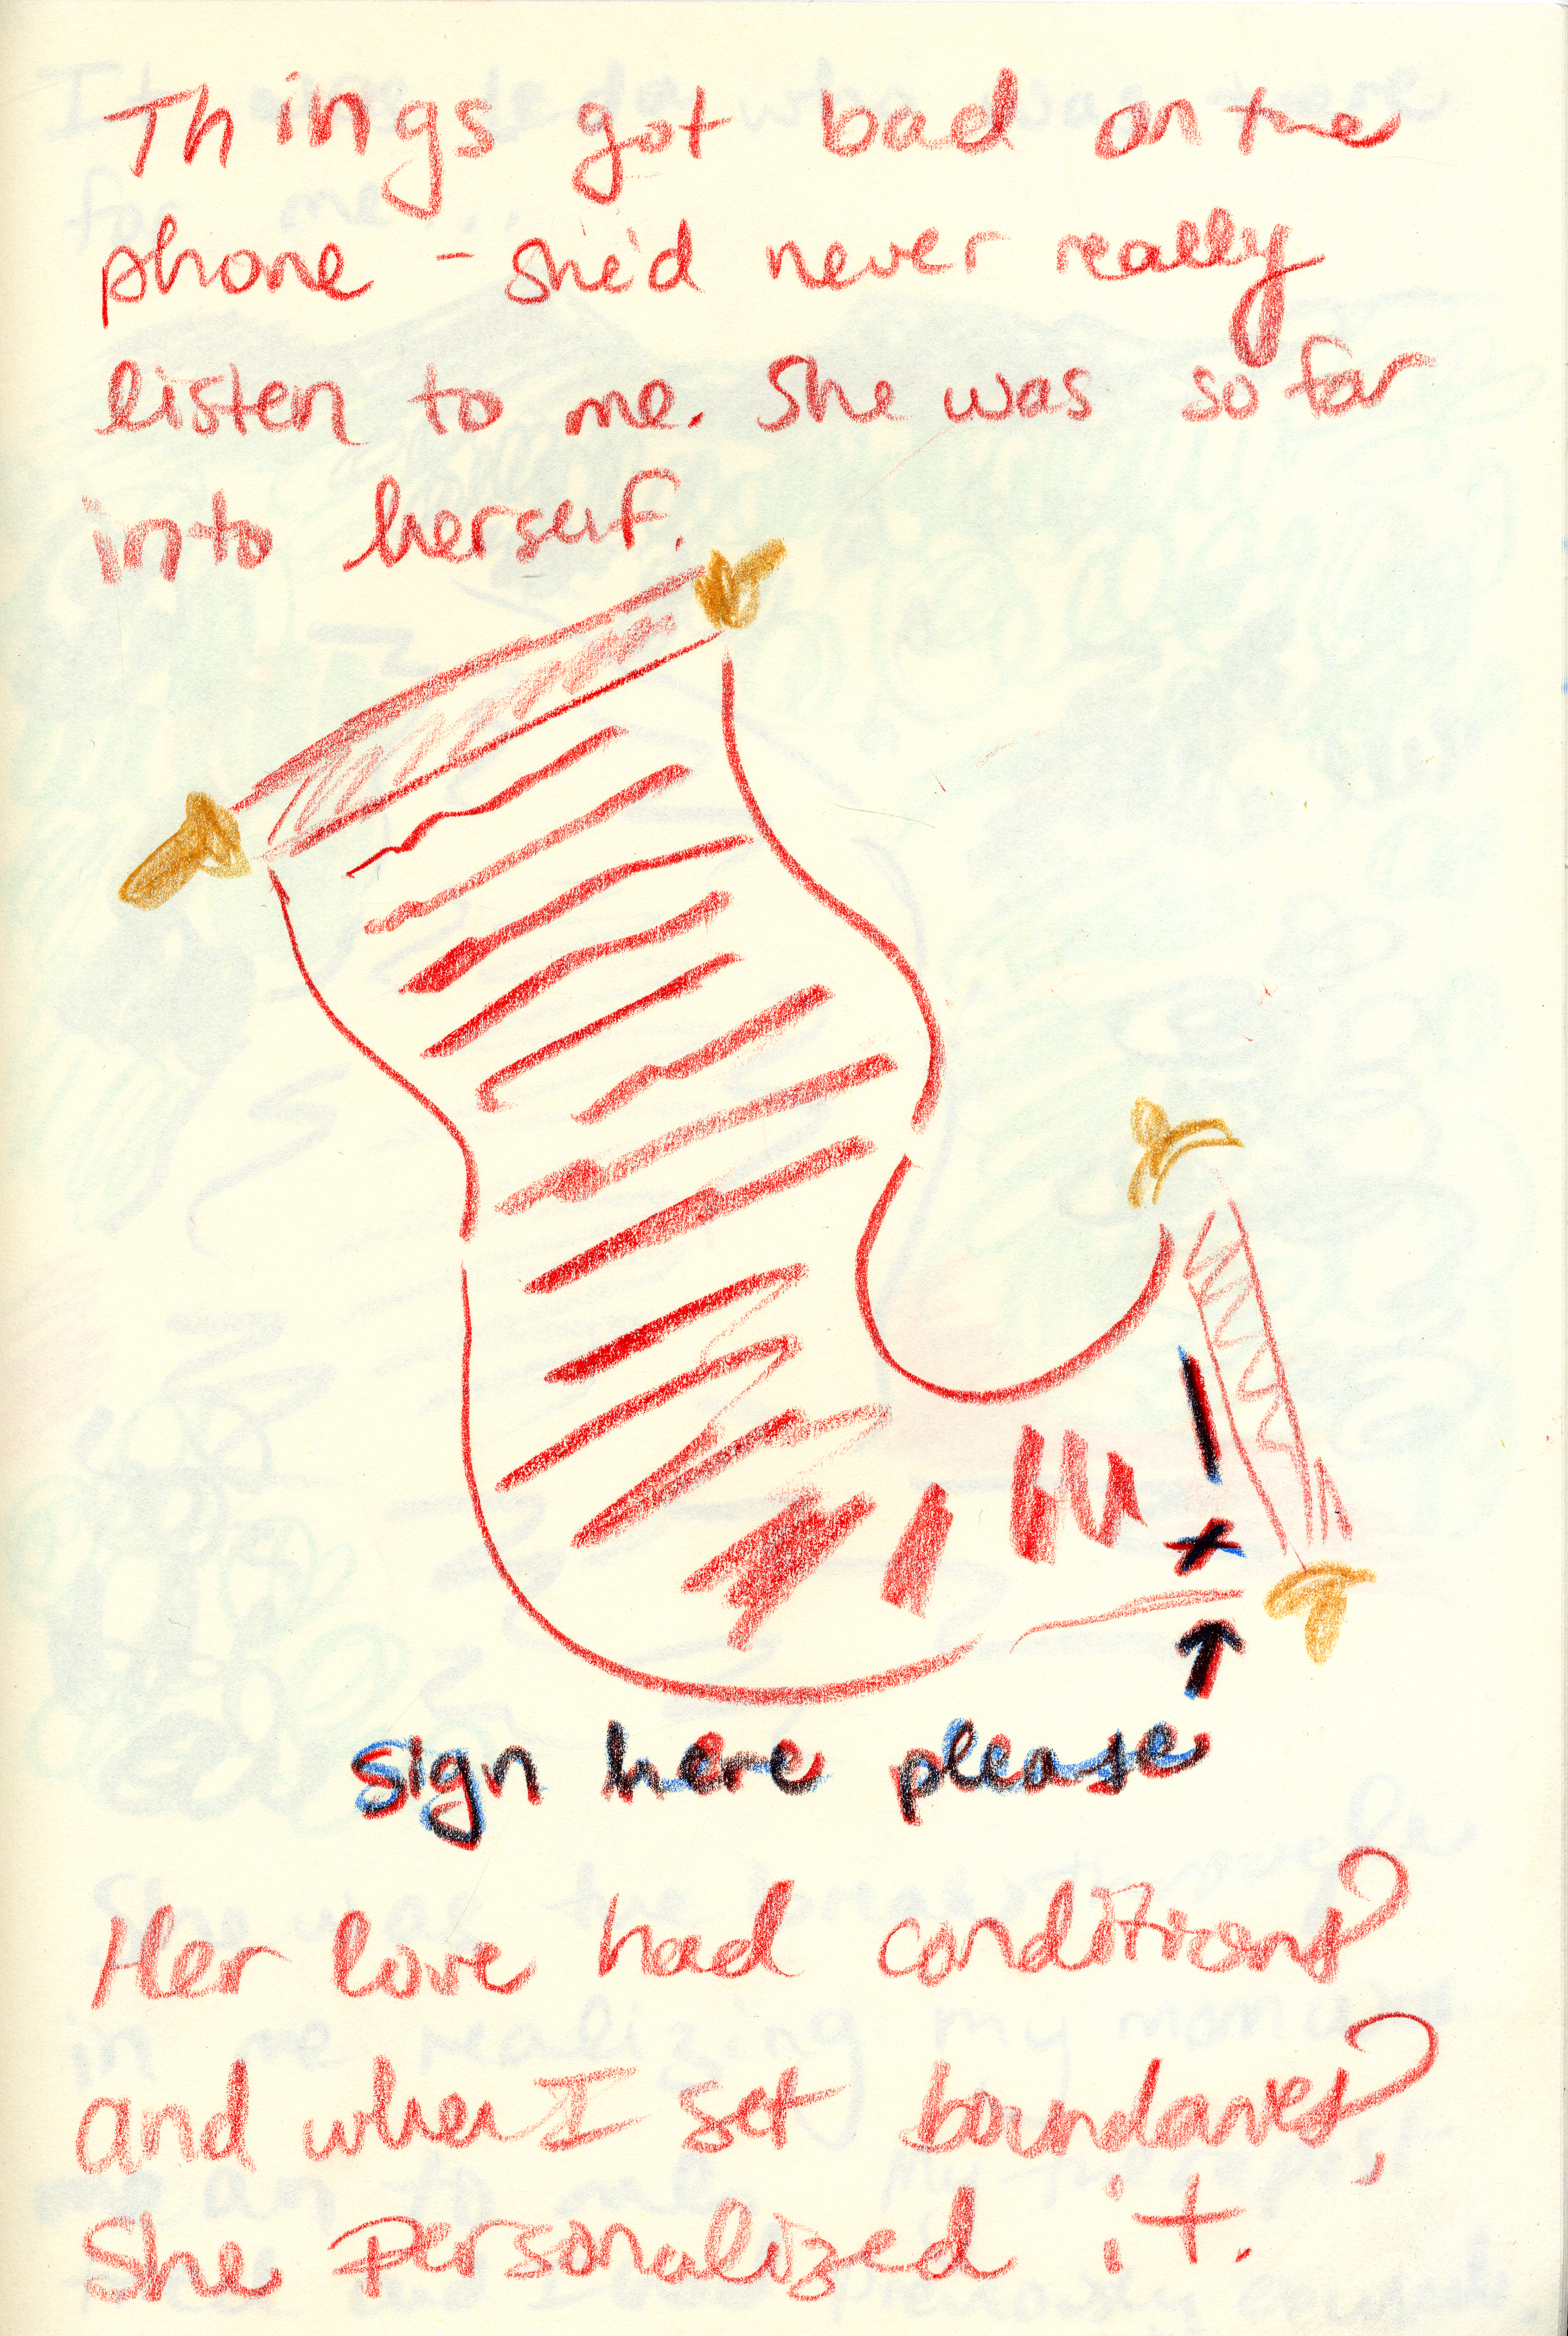 Things got bad on the
phone - she'd never really
listen to me. She was so far
into herself.
x
sign here please
Her love had conditions?
and when I set boundaries?,
She personalized it.